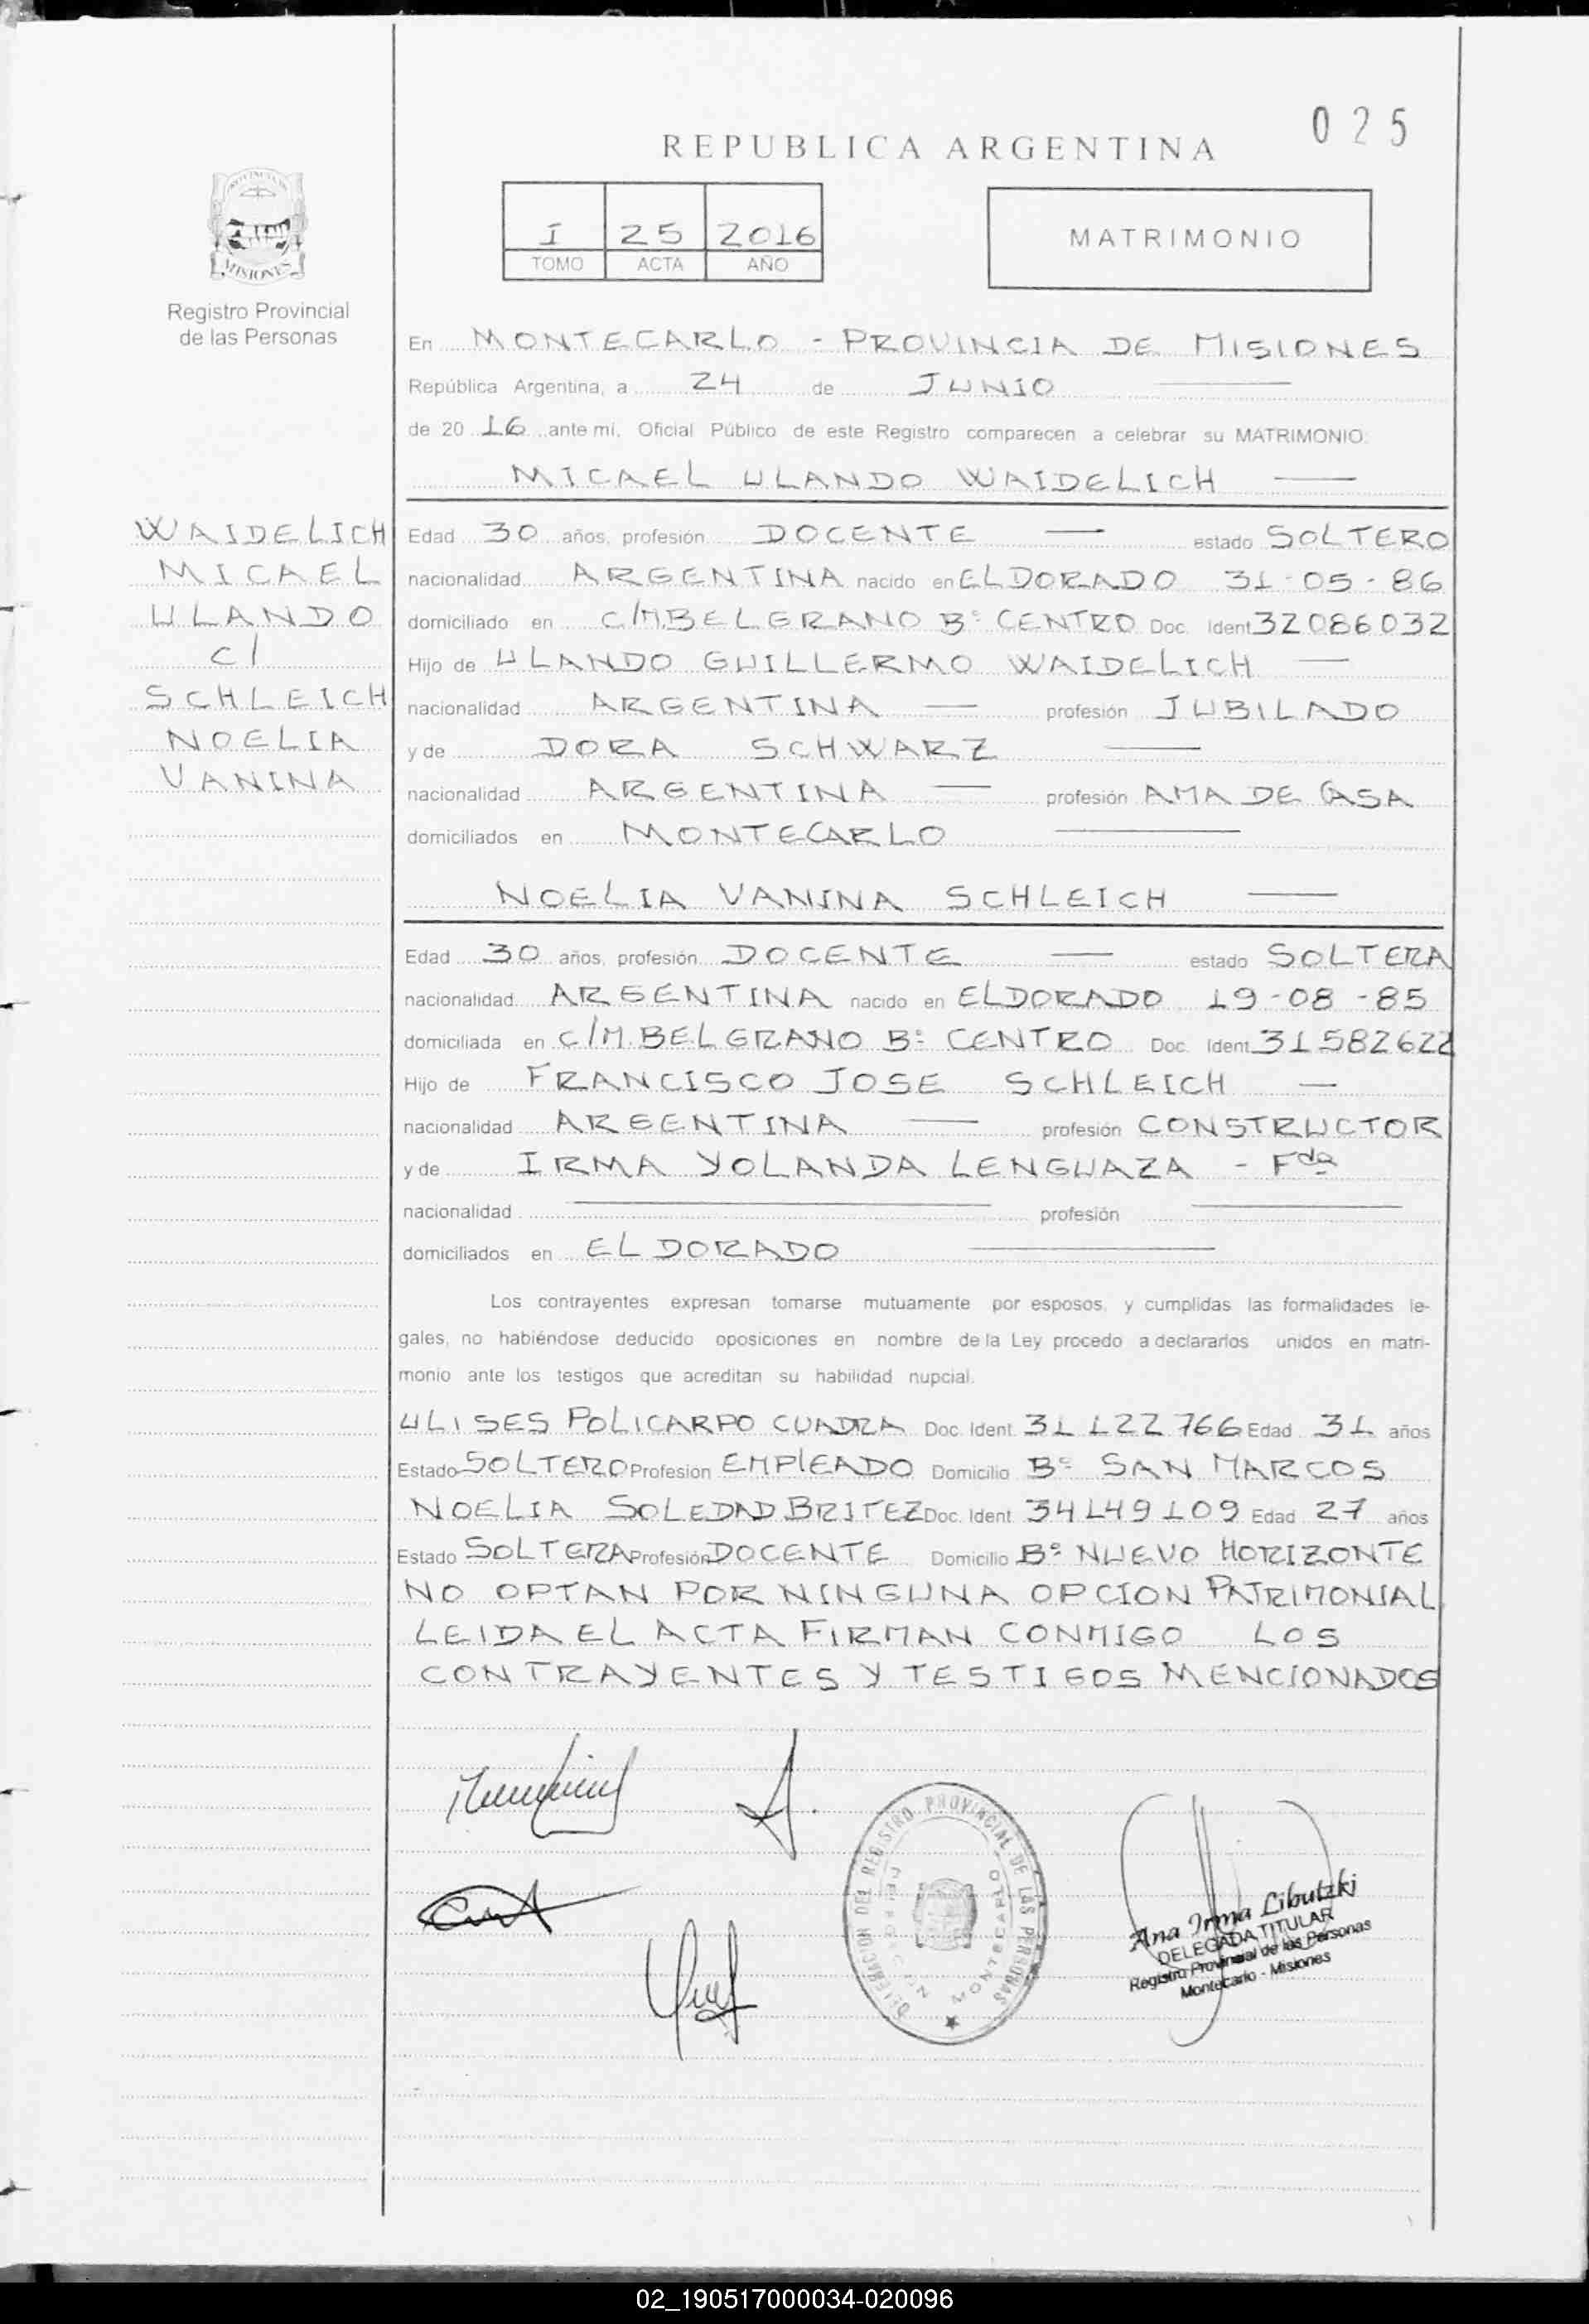 025
REPUBLICA ARGENTINA
I 25 2016
TOMO ACTA AÑO
MATRIMONIO
PROVINCIA DE
MISIONES
Registro Provincial
de las Personas
En MONTECARLO - PROVINCIA DE MISIONES
República Argentina, a 24 de JUNIO
de 20 16 ante mi, Oficial Público de este Registro comparecen a celebrar su MATRIMONIO:
MICAEL ULANDO WAIDELICH
WAIDELICH
MICAEL
ULANDO
C/
SCHLEICH
NOELIA
VANINA
Edad 30 años, profesión DOCENTE estado SOLTERO
nacionalidad ARGENTINA nacido en ELDORADO 31-05-86
domiciliado en C/M.BELGRANO Bº CENTRO Doc. Ident 32086032
Hijo de ULANDO GUILLERMO WAIDELICH
nacionalidad ARGENTINA profesión JUBILADO
y de DORA SCHWARZ
nacionalidad ARGENTINA profesión AMA DE CASA
domiciliados en MONTECARLO
NOELIA VANINA SCHLEICH
Edad 30 años, profesión DOCENTE estado SOLTERA
nacionalidad ARGENTINA nacido en ELDORADO 19-08-85
domiciliada en C/M.BELGRANO Bº CENTRO Doc. Ident 31582622
Hijo de FRANCISCO JOSE SCHLEICH
nacionalidad ARGENTINA profesión CONSTRUCTOR
y de IRMA YOLANDA LENGUAZA - Fda
nacionalidad profesión
domiciliados en ELDORADO
Los contrayentes expresan tomarse mutuamente por esposos, y cumplidas las formalidades le-
gales, no habiéndose deducido oposiciones en nombre de la Ley procedo a declararlos unidos en matri-
monio ante los testigos que acreditan su habilidad nupcial.
ULISES POLICARPO CUADRA Doc. Ident. 31 122 766 Edad 31 años
Estado SOLTERO Profesion EMPLEADO Domicilio Bº SAN MARCOS
NOELIA SOLEDAD BRITEZ Doc. Ident. 34149109 Edad 27 años
Estado SOLTERA Profesión DOCENTE Domicilio Bº NUEVO HORIZONTE
NO OPTAN POR NINGUNA OPCION PATRIMONIAL
LEIDA EL ACTA FIRMAN CONMIGO LOS
CONTRAYENTES Y TESTIGOS MENCIONADOS
DELEGACION DEL REGISTRO PROVINCIAL DE LAS PERSONAS
MONTECARLO
Ana Irma Libutzki
DELEGADA TITULAR
Registro Provincial de las Personas
Montecarlo - Misiones
02_190517000034-020096